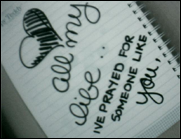 all my
life..
I'VE PRAYED FOR
SOMEONE LIKE
you,